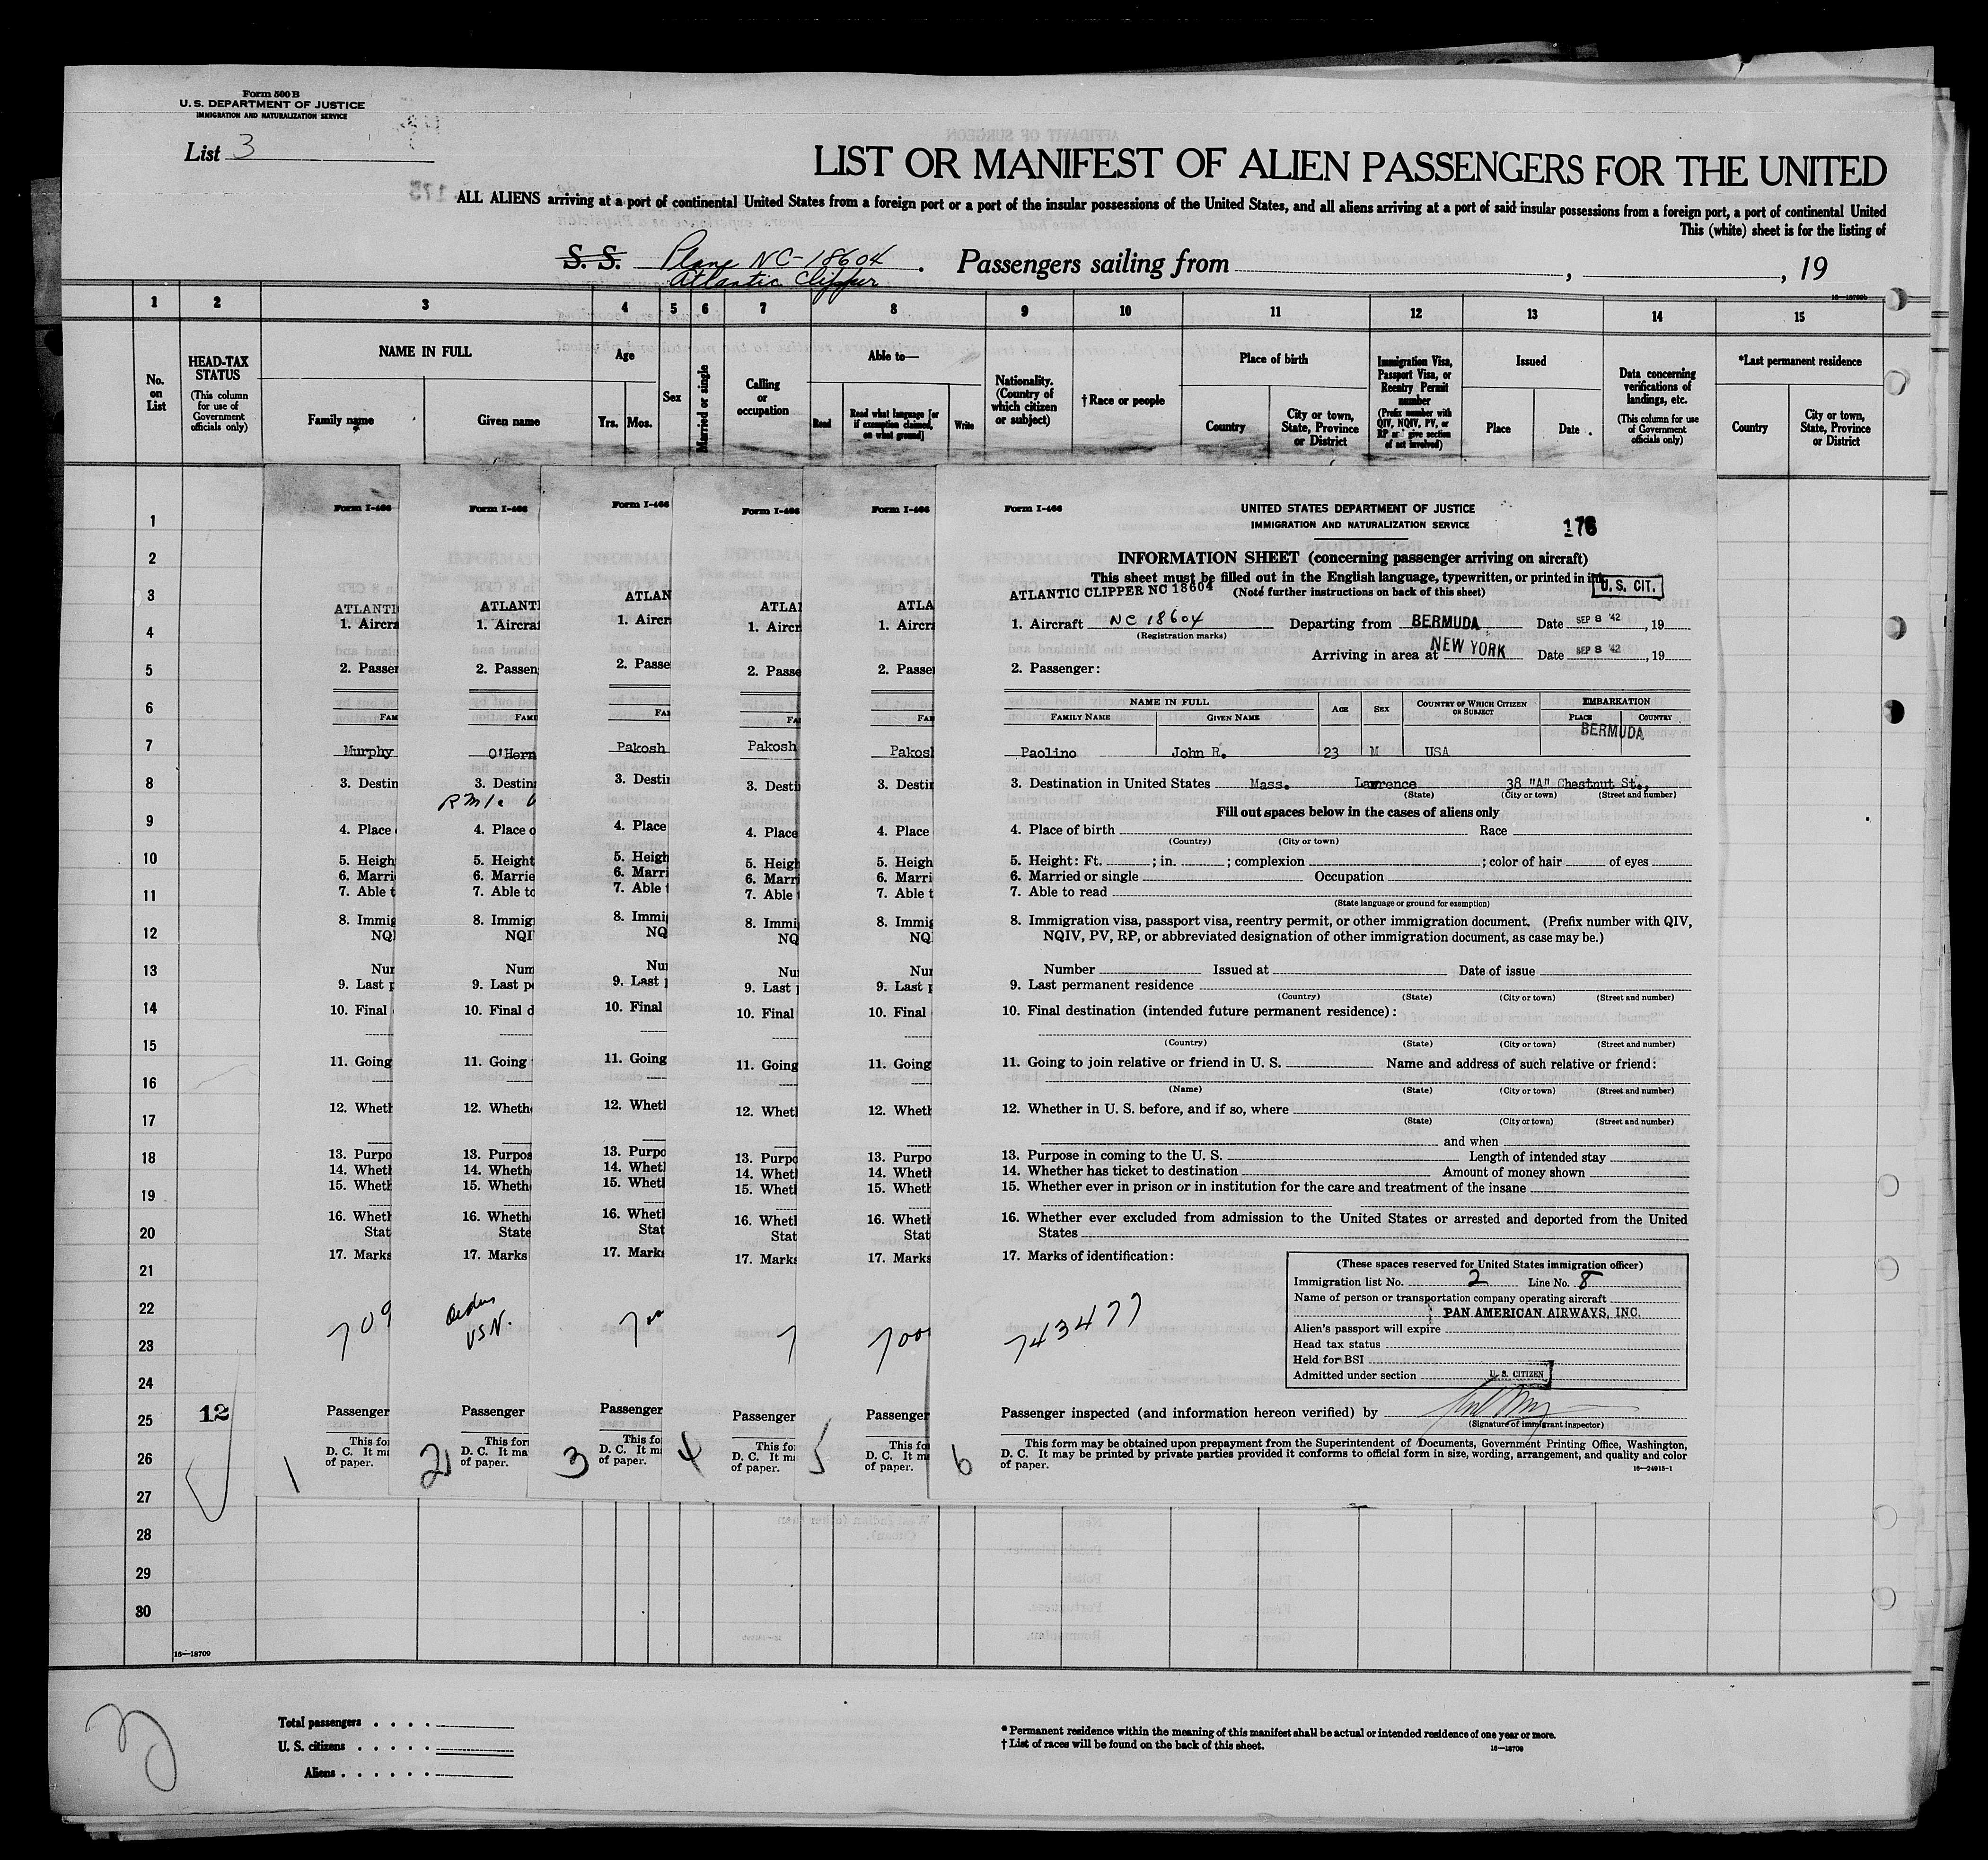 Form 500 B
U. S. DEPARTMENT OF JUSTICE
IMMIGRATION AND NATURALIZATION SERVICE
List 3
LIST OR MANIFEST OF ALIEN PASSENGERS FOR THE UNITED
ALL ALIENS arriving at a port of continental United States from a foreign port or a port of the insular possessions of the United States, and all aliens arriving at a port of said insular possessions from a foreign port, a port of continental United
This (white) sheet is for the listing of
S. S. Plane NC-18604 . Passengers sailing from , , 19
Atlantic Clipper
16—18709b
1 2 3 4 5 6 7 8 9 10 11 12 13 14 15
No. on List
HEAD-TAX STATUS
(This column for use of Government officials only)
NAME IN FULL
Family name
Given name
Age
Yrs. Mos.
Sex
Married or single
Calling or occupation
Able to—
Read
Read what language [or if exemption claimed, on what ground]
Write
Nationality. (Country of which citizen or subject)
†Race or people
Place of birth
Country
City or town, State, Province or District
Immigration Visa, Passport Visa, or Reentry Permit number
(Prefix number with QIV, NQIV, PV, or RP or give section of act involved)
Issued
Place
Date
Data concerning verifications of landings, etc.
(This column for use of Government officials only)
*Last permanent residence
Country
City or town, State, Province or District
1
2
3
4
5
6
7
8
9
10
11
12
13
14
15
16
17
18
19
20
21
22
23
24
25
26
27
28
29
30
12
16—18709
Form I-466
ATLANTI
1. Aircra
2. Passen
FAM
Murphy
3. Destin
4. Place
5. Heigh
6. Marri
7. Able t
8. Immig
NQ
Nur
9. Last p
10. Final
11. Going
12. Wheth
13. Purpo
14. Wheth
15. Wheth
16. Wheth
Stat
17. Marks
709
Passenger
This for
D. C. It ma
of paper.
1
Form I-466
ATLANT
1. Aircraf
2. Passen
FAMI
O'Hern
3. Destina
4. Place o
5. Height
6. Marrie
7. Able to
8. Immig
NQI
Num
9. Last pe
10. Final d
11. Going
12. Wheth
13. Purpos
14. Wheth
15. Wheth
16. Wheth
State
17. Marks
Orders
USN.
Passenger
This for
D. C. It ma
of paper.
2
Form I-466
ATLAN
1. Aircr
2. Passe
FA
Pakosh
3. Desti
4. Place
5. Heigh
6. Marri
7. Able
8. Immi
NQ
Nu
9. Last
10. Final
11. Going
12. Whet
13. Purpo
14. Whet
15. Whet
16. Whet
Stat
17. Marks
700
Passenger
This fo
D. C. It m
of paper.
3
Form I-466
ATLA
1. Aircr
2. Passe
FA
Pakosh
3. Desti
4. Place
5. Heigh
6. Marri
7. Able
8. Immi
NQ
Nu
9. Last
10. Final
11. Going
12. Whet
13. Purpo
14. Whet
15. Whet
16. Whet
Stat
17. Marks
7
Passenger
This fo
D. C. It ma
of paper.
4
Form I-466
ATLA
1. Aircr
2. Passe
FA
Pakosh
3. Destin
4. Place
5. Heigh
6. Marri
7. Able t
8. Immig
NQ
Nur
9. Last p
10. Final
11. Going
12. Whet
13. Purpo
14. Whet
15. Whet
16. Whet
Stat
17. Marks
700
Passenger
This fo
D. C. It m
of paper.
5
Form I-466
UNITED STATES DEPARTMENT OF JUSTICE
IMMIGRATION AND NATURALIZATION SERVICE
176
INFORMATION SHEET (concerning passenger arriving on aircraft)
This sheet must be filled out in the English language, typewritten, or printed in ink
U. S. CIT.
ATLANTIC CLIPPER NC 18604 (Note further instructions on back of this sheet)
1. Aircraft NC 18604 Departing from BERMUDA Date SEP 8 '42, 19
(Registration marks)
Arriving in area at NEW YORK Date SEP 8 '42, 19
2. Passenger:
NAME IN FULL
FAMILY NAME GIVEN NAME AGE SEX COUNTRY OF WHICH CITIZEN OR SUBJECT EMBARKATION
PLACE COUNTRY
BERMUDA
Paolino John R. 23 M USA
3. Destination in United States Mass. Lawrence 38 "A" Chestnut St.,
(State) (City or town) (Street and number)
Fill out spaces below in the cases of aliens only
4. Place of birth Race
(Country) (City or town)
5. Height: Ft. ; in. ; complexion ; color of hair of eyes
6. Married or single Occupation
7. Able to read
(State language or ground for exemption)
8. Immigration visa, passport visa, reentry permit, or other immigration document. (Prefix number with QIV,
NQIV, PV, RP, or abbreviated designation of other immigration document, as case may be.)
Number Issued at Date of issue
9. Last permanent residence
(Country) (State) (City or town) (Street and number)
10. Final destination (intended future permanent residence):
(Country) (State) (City or town) (Street and number)
11. Going to join relative or friend in U. S. Name and address of such relative or friend:
(Name) (State) (City or town) (Street and number)
12. Whether in U. S. before, and if so, where
(State) (City or town) (Street and number)
and when
13. Purpose in coming to the U. S. Length of intended stay
14. Whether has ticket to destination Amount of money shown
15. Whether ever in prison or in institution for the care and treatment of the insane
16. Whether ever excluded from admission to the United States or arrested and deported from the United
States
17. Marks of identification:
743477
(These spaces reserved for United States immigration officer)
Immigration list No. 2 Line No. 8
Name of person or transportation company operating aircraft
PAN AMERICAN AIRWAYS, INC.
Alien's passport will expire
Head tax status
Held for BSI
Admitted under section U. S. CITIZEN
Passenger inspected (and information hereon verified) by
(Signature of immigrant inspector)
This form may be obtained upon prepayment from the Superintendent of Documents, Government Printing Office, Washington,
D. C. It may be printed by private parties provided it conforms to official form in size, wording, arrangement, and quality and color
of paper.
16—24915-1
6
Total passengers . . . .
U. S. citizens . . . . .
Aliens . . . . . .
* Permanent residence within the meaning of this manifest shall be actual or intended residence of one year or more.
† List of races will be found on the back of this sheet.
16—18709